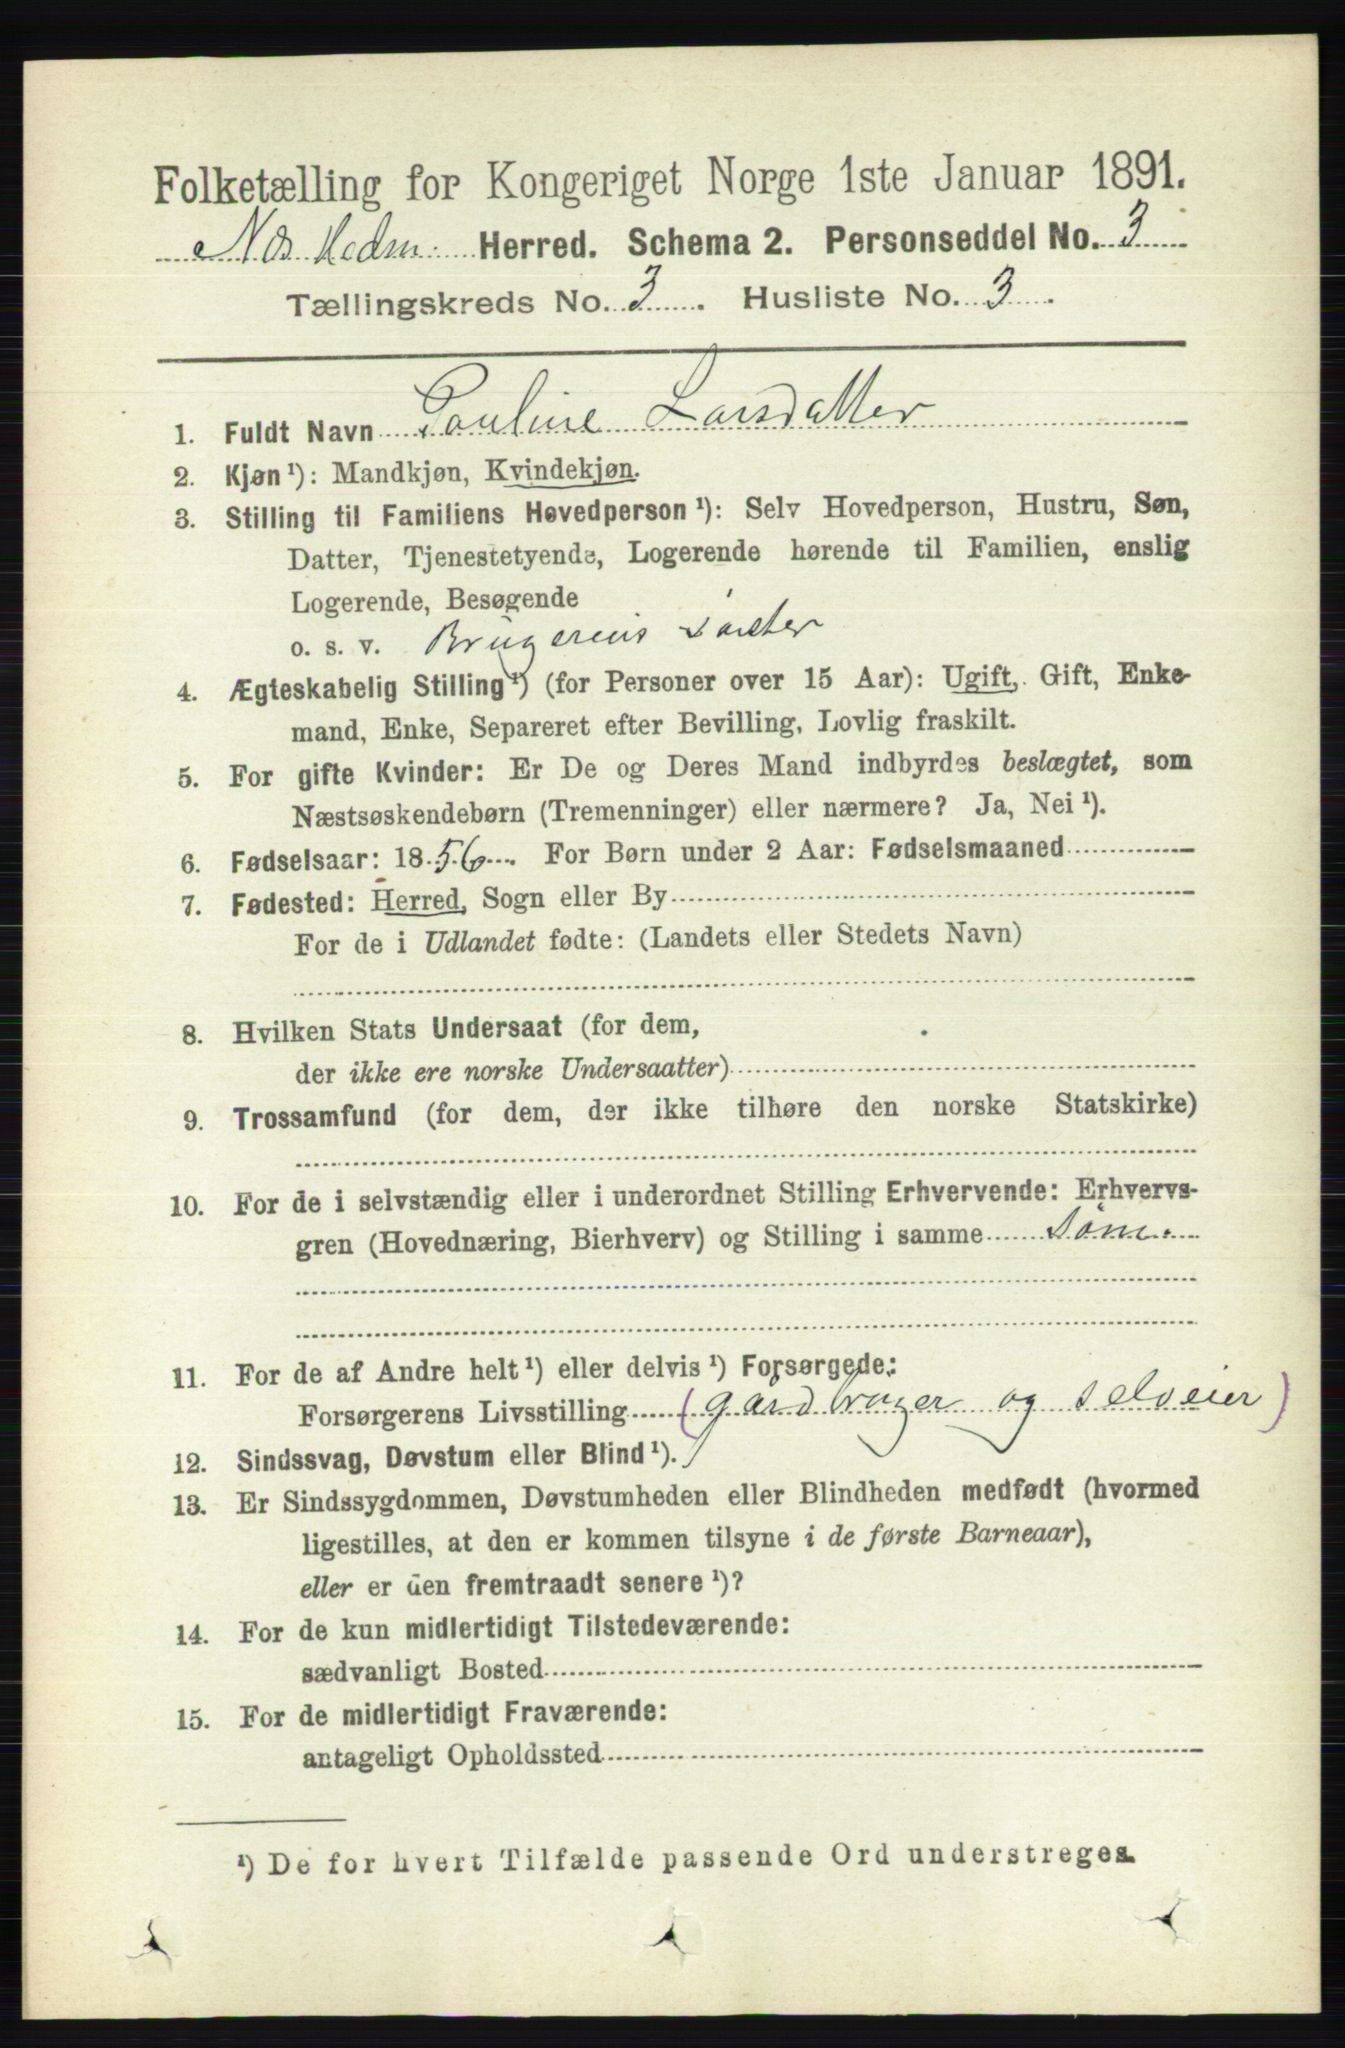 Folketælling for Kongeriget Norge 1ste Januar 1891.
Næs Hedm. Herred. Schema 2. Personseddel No. 3
Tællingskreds No. 3. Husliste No. 3.
1. Fuldt Navn Pauline Larsdatter
2. Kjøn ¹): Mandkjøn, Kvindekjøn.
3. Stilling til Familiens Hovedperson ¹): Selv Hovedperson, Hustru, Søn,
Datter, Tjenestetyende, Logerende hørende til Familien, enslig
Logerende, Besøgende
o. s. v. Brugerens søster
4. Ægteskabelig Stilling ¹) (for Personer over 15 Aar): Ugift, Gift, Enke-
mand, Enke, Separeret efter Bevilling, Lovlig fraskilt.
5. For gifte Kvinder: Er De og Deres Mand indbyrdes beslægtet, som
Næstsøskendebørn (Tremenninger) eller nærmere? Ja, Nei ¹).
6. Fødselsaar: 1856. For Børn under 2 Aar: Fødselsmaaned
7. Fødested: Herred, Sogn eller By
For de i Udlandet fødte: (Landets eller Stedets Navn)
8. Hvilken Stats Undersaat (for dem,
der ikke ere norske Undersaatter)
9. Trossamfund (for dem, der ikke tilhøre den norske Statskirke)
10. For de i selvstændig eller i underordnet Stilling Erhvervende: Erhvervs-
gren (Hovednæring, Bierhverv) og Stilling i samme Søm.
11. For de af Andre helt ¹) eller delvis ¹) Forsørgede:
Forsørgerens Livsstilling (gårdbruger og selveier)
12. Sindssvag, Døvstum eller Blind ¹).
13. Er Sindssygdommen, Døvstumheden eller Blindheden medfødt (hvormed
ligestilles, at den er kommen tilsyne i de første Barneaar),
eller er den fremtraadt senere ¹)?
14. For de kun midlertidigt Tilstedeværende:
sædvanligt Bosted
15. For de midlertidigt Fraværende:
antageligt Opholdssted
¹) De for hvert Tilfælde passende Ord understreges.